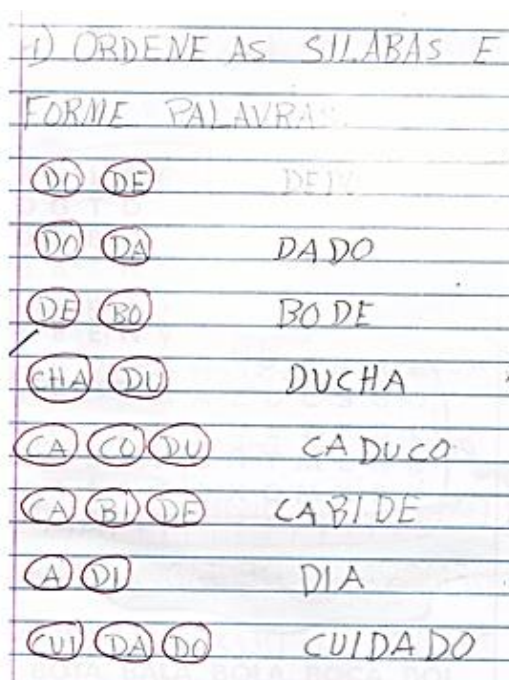 1) ORDENE AS SILABAS E
FORME PALAVRAS
DO DE
DO DA DADO
DE BO BODE
CHA DU DUCHA
CA CO DU CADUCO
CA BI DE CABIDE
A DI DIA
CUI DA DO CUIDADO